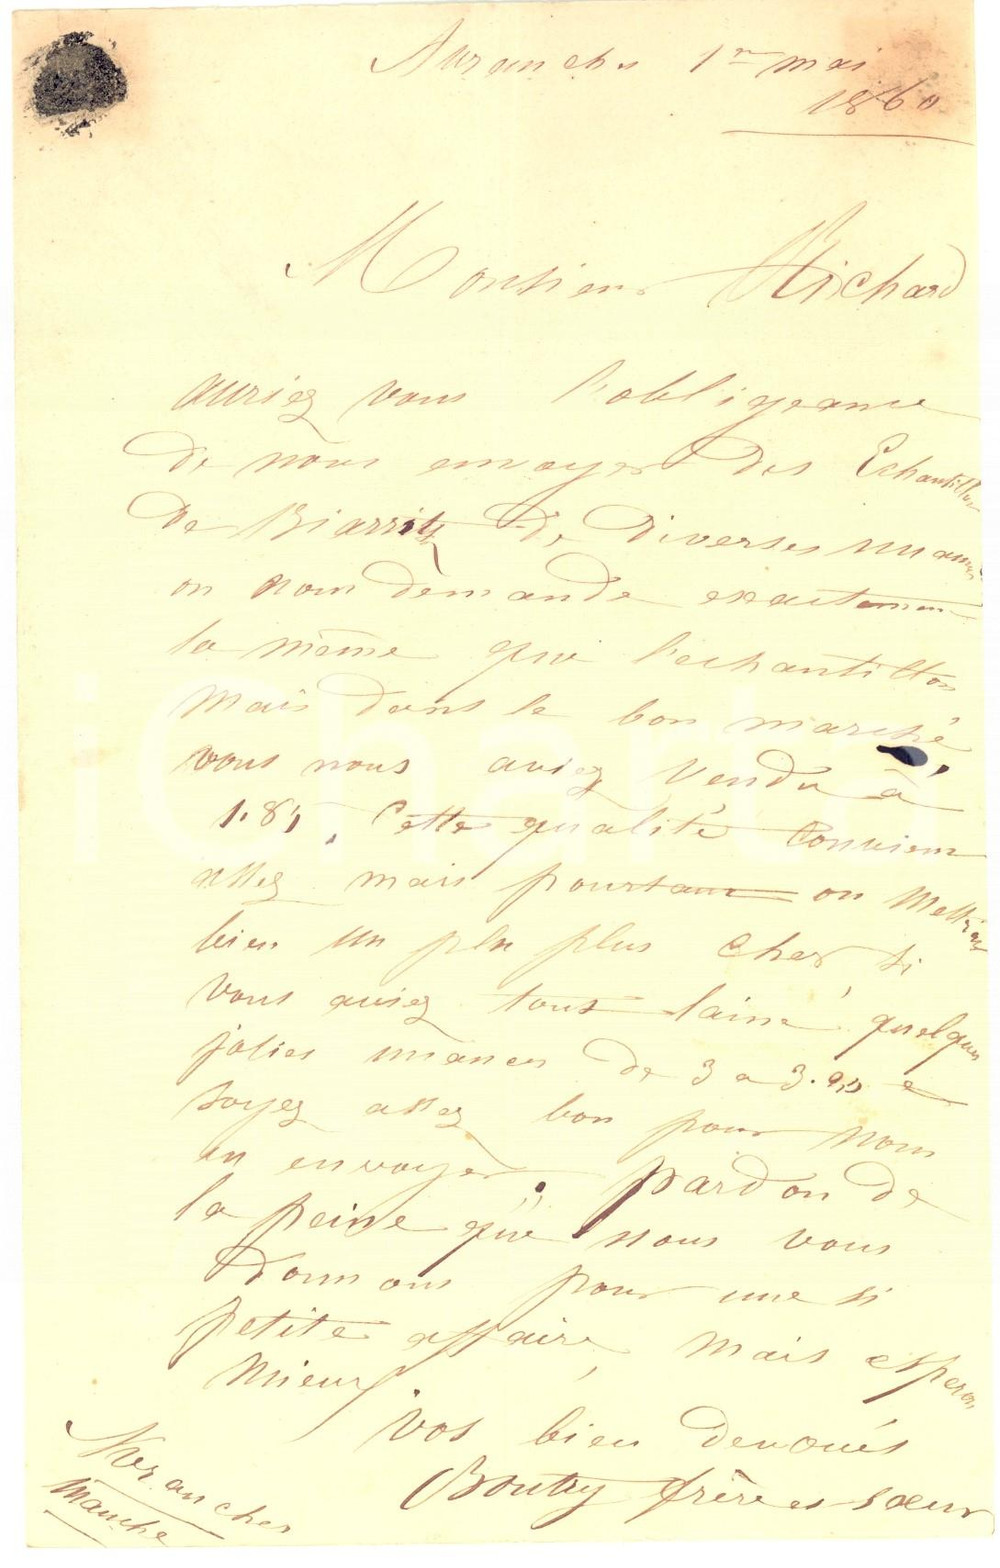 Avranches 1er mai
1860
Monsieur Richard
auriez vous l'obligeance
de nous envoyer des Echantillon
de Biarritz de diverses nuances
on nous demande exactement
la même que l'echantillon
mais dans le bon marché
vous nous aviez vendu à
1.85, Cette qualité convient
assez mais pourtant on mettrait
bien un peu plus cher si
vous aviez tout laine quelques
jolies nuances de 3 a 3.
soyez assez bon pour nous
en envoyer. pardon de
la peine que nous vous
donnons pour une si
petite affaire, mais esperon
mieux.
Vos bien devoués
Boutry frère et soeur
Avranches
Manche
iCharta